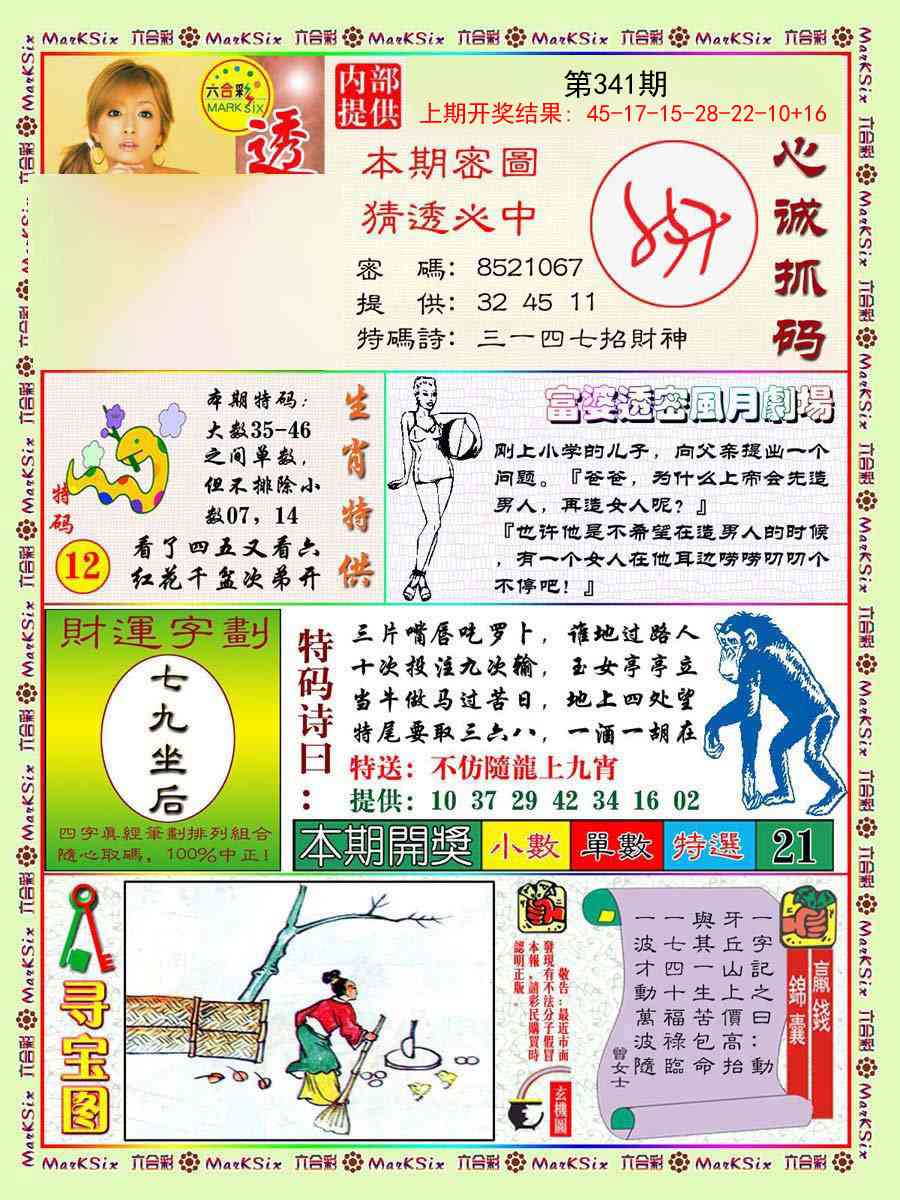 MarKSix 六合彩 MarKSix 六合彩 MarKSix 六合彩 MarKSix 六合彩 MarKSix 六合彩
六合彩
MARK SIX
透
内部
提供
第341期
上期开奖结果：45-17-15-28-22-10+16
本期密圖
猜透必中
密 碼：8521067
提 供：32 45 11
特碼詩：三一四七招財神
心诚抓码
本期特码：
大数35-46
之间单数，
但不排除小
数07，14
看了四五又看六
红花千盆次弟开
特码
12
生肖特供
富婆透密風月劇場
刚上小学的儿子，向父亲提出一个
问题。『爸爸，为什么上帝会先造
男人，再造女人呢？』
『也许他是不希望在造男人的时候
，有一个女人在他耳边唠唠叨叨个
不停吧！』
財運字劃
七九坐后
四字真經筆劃排列組合
隨心取碼，100%中正！
特码诗曰：
三片嘴唇吃罗卜，谁地过路人
十次投注九次输，玉女亭亭立
当牛做马过苦日，地上四处望
特尾要取三六八，一酒一胡在
特送：不仿隨龍上九宵
提供：10 37 29 42 34 16 02
本期開獎 小數 單數 特選 21
寻宝图
敬告：最近市面
發現有不法分子假冒
本報，請彩民購買時
認明正版。
玄機圖
一字記之曰：動
牙丘山上價高抬
與其一生苦包命
一七四十福祿臨
一波才動萬波隨
曾女士
贏錢
錦囊
MarKSix 六合彩 MarKSix 六合彩 MarKSix 六合彩 MarKSix 六合彩 MarKSix 六合彩